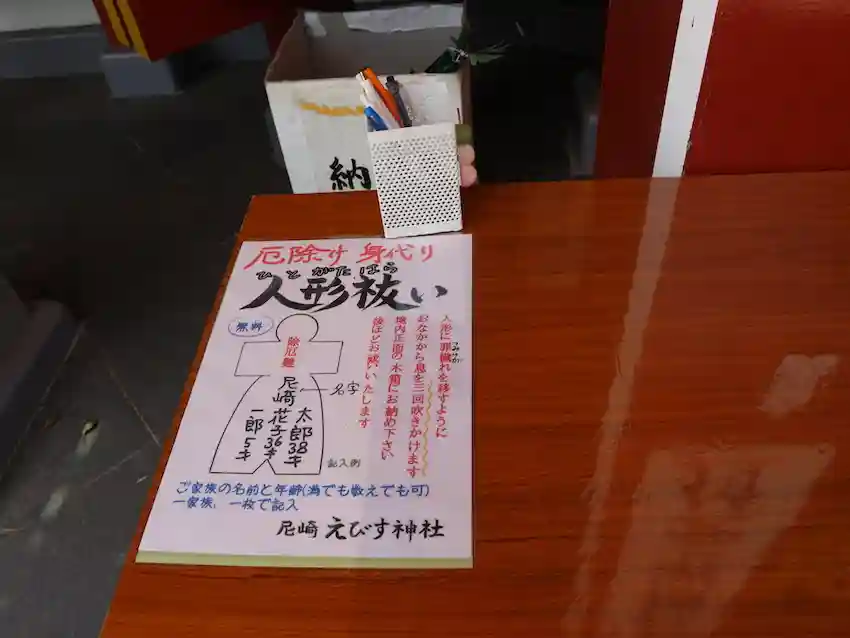 納
厄除け 身代り
ひとがたはらい
人形祓い
無料
除厄難
尼崎
名字
太郎38才
花子36才
一郎5才
記入例
人形に罪穢れを移すように
つみけが
おなかから息を三回吹きかけます
境内正面の木箱にお納め下さい
後ほどお祓いいたします
ご家族の名前と年齢(満でも数えでも可)
一家族、一枚で記入
尼崎 えびす神社